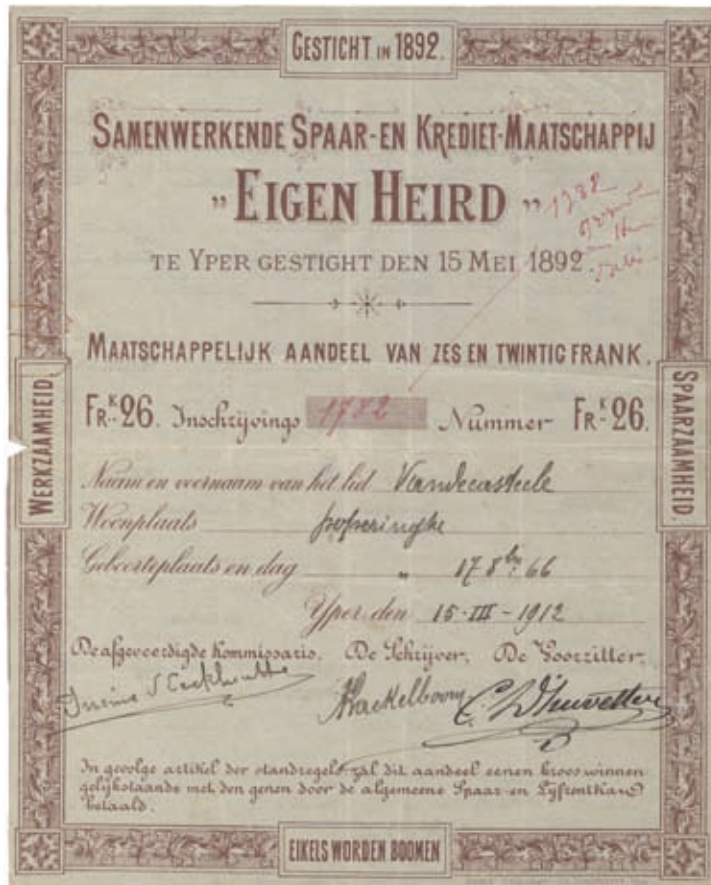 GESTICHT IN 1892.
SAMENWERKENDE SPAAR-EN KREDIET-MAATSCHAPPIJ
„EIGEN HEIRD”
1782
TE YPER GESTIGHT DEN 15 MEI 1892.
MAATSCHAPPELIJK AANDEEL VAN ZES EN TWINTIG FRANK.
FRK 26. Inschrijvings 1782 Nummer FRK 26.
WERKZAAMHEID
SPAARZAAMHEID.
Naam en voornaam van het lid Vandecasteele
Woonplaats poperinghe
Geboorteplaats en dag „ 17 8bre 66
Yper den 15-III-1912
De afgeveerdigde Kommissaris. De Schrijver, De Voorzitter,
In gevolge artikel der standregels zal dit aandeel eenen kroos winnen
gelijkstaande met den genen door de algemeene Spaar en Lyfrentkas
betaald.
EIKELS WORDEN BOOMEN